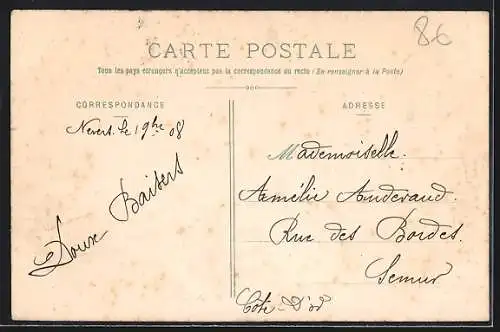 86
CARTE POSTALE
Tous les pays étrangers n'acceptent pas la correspondance au recto (Se renseigner à la Poste)
CORRESPONDANCE
Nevers. le 1 9bre 08
Doux Baisers
ADRESSE
Mademoiselle.
Amélie Anderaud.
Rue des Bordes.
Semur
Côte-D'or